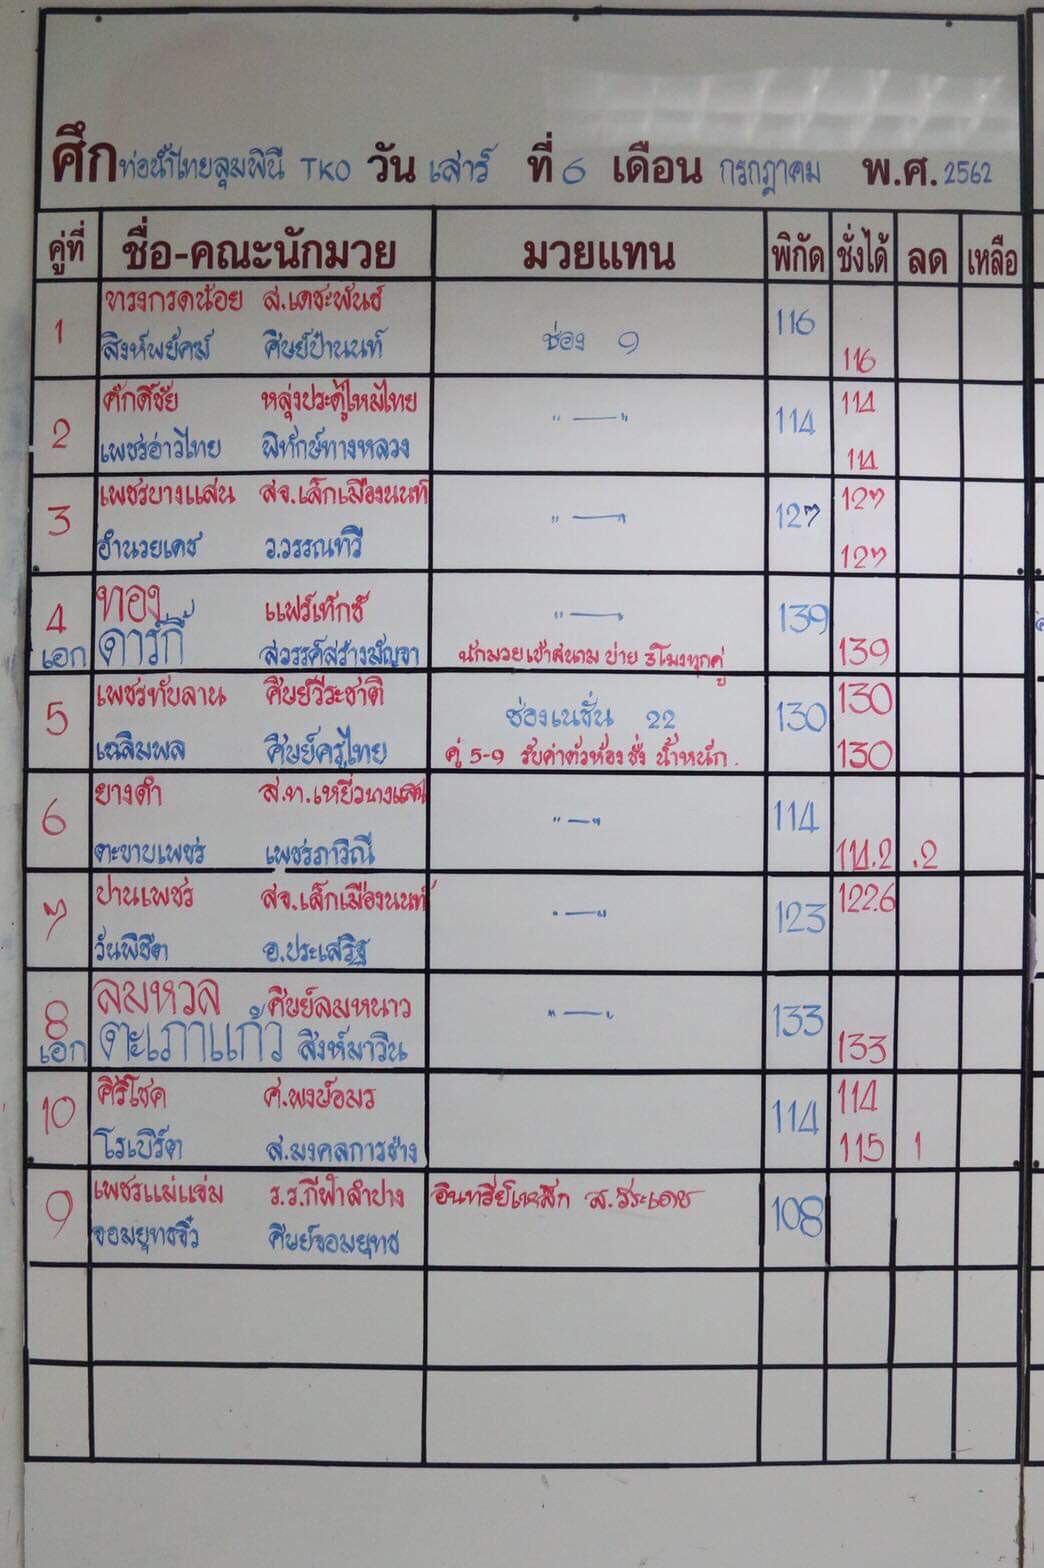 ศึกท่อน้ำไทยลุมพินี TKO วัน เสาร์ ที่ 6 เดือน กรกฎาคม พ.ศ. 2562
คู่ที่ ชื่อ-คณะนักมวย มวยแทน พิกัด ชั่งได้ ลด เหลือ
1 ทรงกรดน้อย ส.เดชะพันธ์ 116
สิงห์พยัคฆ์ ศิษย์ป๋านนท์ ช่อง 9 116
2 ศักดิ์ชัย หลุ่งประตู้ไหมไทย 114 114
เพชรอ่าวไทย พิทักษ์ทางหลวง " — " 114
3 เพชรบางแสน สจ.เล็กเมืองนนท์ 127 127
อำนวยเดช ว.วรรณทวี " — " 127
4 ทอง แฟร์เท็กซ์ " — " 139
เอก ดาร์กี้ สวรรค์สร้างสัญจา นักมวยเข้าสนาม บ่าย 3 โมงทุกคู่ 139
5 เพชรทับลาน ศิษย์วีระชาติ ช่องเนชั่น 22 130 130
เฉลิมพล ศิษย์ครูไทย คู่ 5-9 รับค่าตัวห้องชั่ง น้ำหนัก. 130
6 ยางดำ ส.ท.เหยี่ยวบางแสน " — " 114
ตะขาบเพชร เพชรภาวิณี 114.2 .2
7 ปานเพชร สจ.เล็กเมืองนนท์ " — " 123 122.6
วันพิชิต อ.ประเสริฐ
8 ลมหวล ศิษย์ลมหนาว " — " 133
เอก ตะเภาแก้ว สิงห์มาวิน 133
10 ศิริโชค ศ.พงษ์อมร 114 114
โรเบิร์ต ส.มงคลการช่าง 115 1
9 เพชรแม่แจ่ม ร.ร.กีฬาลำปาง อินทรีย์โตสึก ส.วีระเดช 108
จอมยุทธจิ๋ว ศิษย์จอมยุทธ